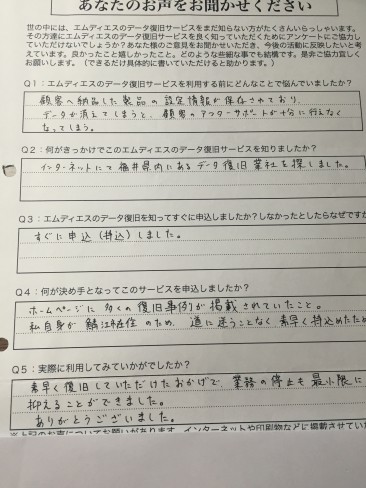 あなたのお声をお聞かせください
世の中には、エムディエスのデータ復旧サービスをまだ知らない方がたくさんいらっしゃいます。
その方達にエムディエスのデータ復旧サービスを良く知っていただくためにアンケートにご協力し
ていただけないでしょうか?あなた様のご意見をお聞かせいただき、今後の活動に反映したいと考
えています。良かったこと嬉しかったこと。どのような些細な事でも結構です。是非ご協力宜しく
お願いします。(できるだけ具体的に書いていただけると助かります。)
Q1:エムディエスのデータ復旧サービスを利用する前にどんなことで悩んでいましたか?
顧客へ納品した製品の設定情報が保存されており、
データが消えてしまうと、顧客のアフターサポートが十分に行えなく
なってしまう。
Q2:何がきっかけでこのエムディエスのデータ復旧サービスを知りましたか?
インターネットにて福井県内にあるデータ復旧業社を探しました。
Q3:エムディエスのデータ復旧を知ってすぐに申込しましたか?しなかったとしたらなぜですか
すぐに申込(持込)しました。
Q4:何が決め手となってこのサービスを申込しましたか?
ホームページに多くの復旧事例が掲載されていたこと。
私自身が鯖江在住のため、道に迷うことなく素早く持込めたため
Q5:実際に利用してみていかがでしたか?
素早く復旧していただけたおかげで、業務の停止も最小限に
抑えることができました。
ありがとうございました。
※上記のお声についてお願いがあります。インターネットや印刷物などに掲載させてい